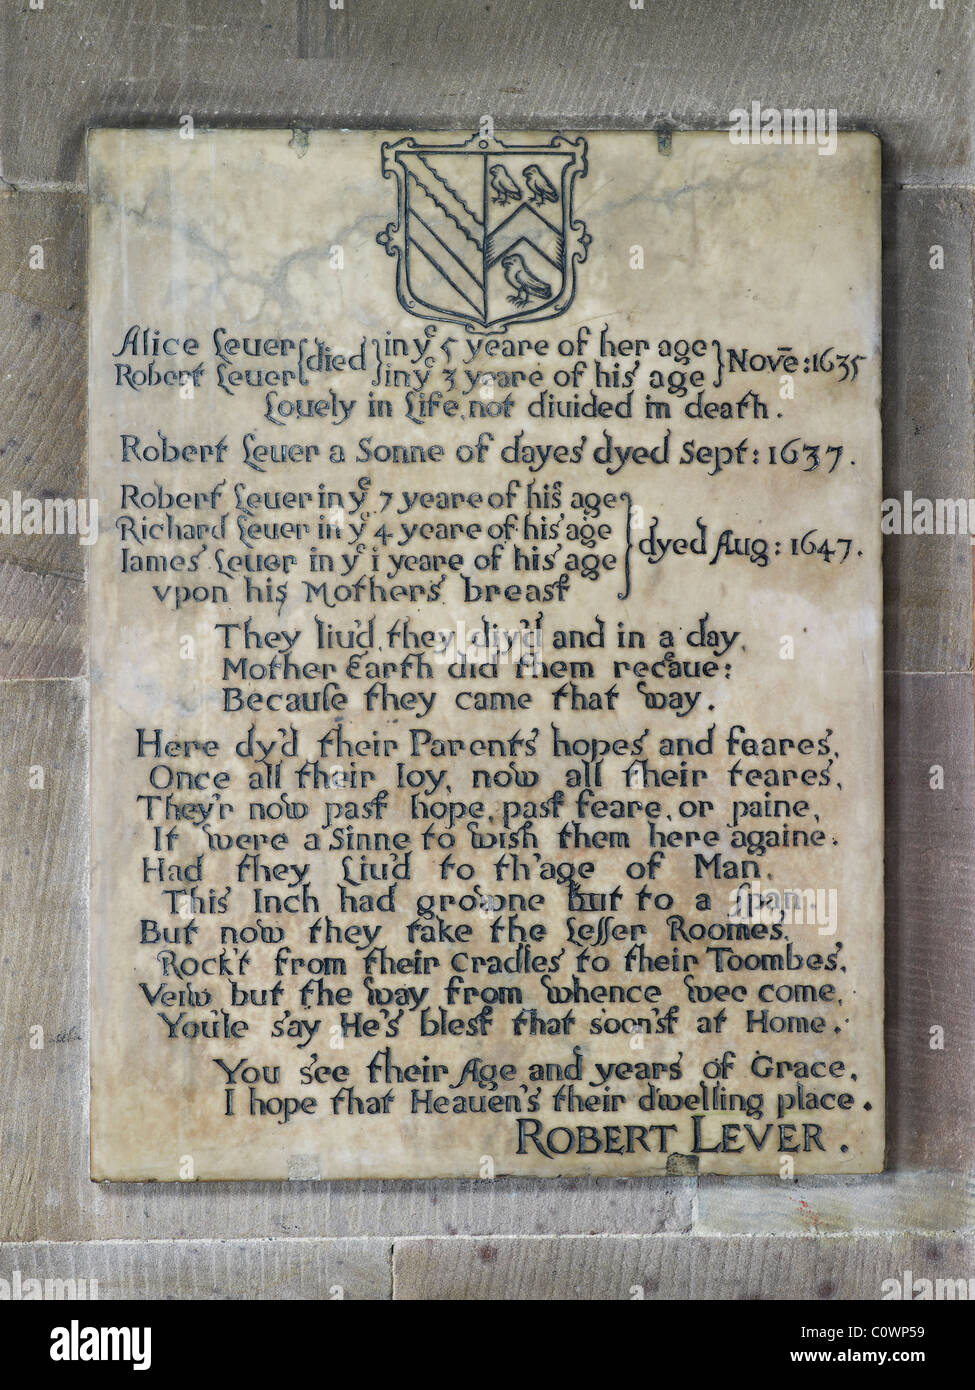 Alice Leuer died in yᵉ 5 yeare of her age Novē: 1635
Robert Leuer in yᵉ 3 yeare of his age
Louely in Life, not diuided in death.
Robert Leuer a Sonne of dayes dyed Sept: 1637.
Robert Leuer in yᵉ 7 yeare of his age
Richard Leuer in yᵉ 4 yeare of his age dyed Aug: 1647.
Iames Leuer in yᵉ 1 yeare of his age
vpon his Mothers breast
They liu'd, they diy'd and in a day,
Mother Earth did them receaue:
Because they came that way.
Here dy'd their Parents hopes and feares,
Once all their Ioy, now all their teares,
They'r now past hope, past feare, or paine,
It were a Sinne to wish them here againe.
Had they Liu'd to th'age of Man,
This Inch had growne but to a span.
But now they take the Lesser Roomes,
Rock't from their Cradles to their Toombes,
Veiw but the way from whence wee come,
You'le say He's blest that soon'st at Home.
You see their Age and years of Grace,
I hope that Heauen's their dwelling place.
ROBERT LEVER.
alamy
Image ID: C0WP59
www.alamy.com